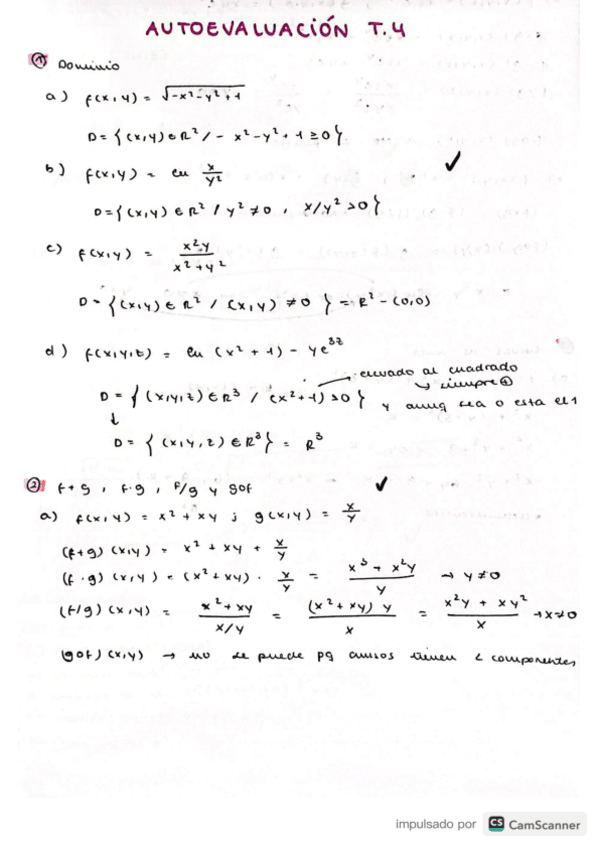 AUTOEVALUACIÓN T.4
① Dominio
a) f(x,y) = √(-x²-y²+1)
D = {(x,y) ∈ R² / -x²-y²+1 ≥ 0}
b) f(x,y) = ln x/y²
D = {(x,y) ∈ R² / y² ≠ 0, x/y² > 0}
c) f(x,y) = x²y/x²+y²
D = {(x,y) ∈ R² / (x,y) ≠ 0} = R² - (0,0)
d) f(x,y,z) = ln (x²+1) - ye³ᶻ
→ elevado al cuadrado
↳ siempre ⊕
D = {(x,y,z) ∈ R³ / (x²+1) > 0} y aunq sea 0 esta el 1
↓
D = {(x,y,z) ∈ R³} = R³
② f+g, f·g, f/g y gof
a) f(x,y) = x² + xy ; g(x,y) = x/y
(f+g)(x,y) = x² + xy + x/y
(f·g)(x,y) = (x²+xy) · x/y = x³ + x²y/y → y≠0
(f/g)(x,y) = x²+xy/x/y = (x²+xy) y/x = x²y + xy²/x → x≠0
(gof)(x,y) → no se puede pq ambos tienen 2 componentes
impulsado por CS CamScanner